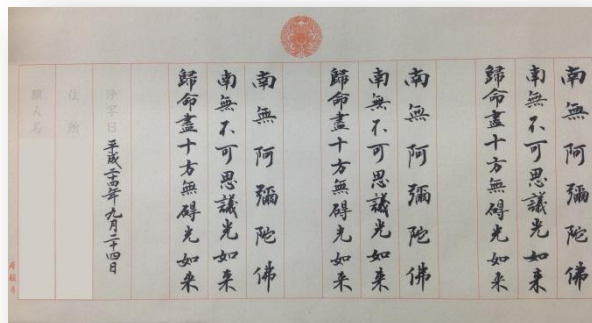 南無阿彌陀佛
南無不可思議光如来
歸命盡十方無碍光如来
南無阿彌陀佛
南無不可思議光如来
歸命盡十方無碍光如来
南無阿彌陀佛
南無不可思議光如来
歸命盡十方無碍光如来
浄写日 平成二十四年九月二十四日
住所
願人名